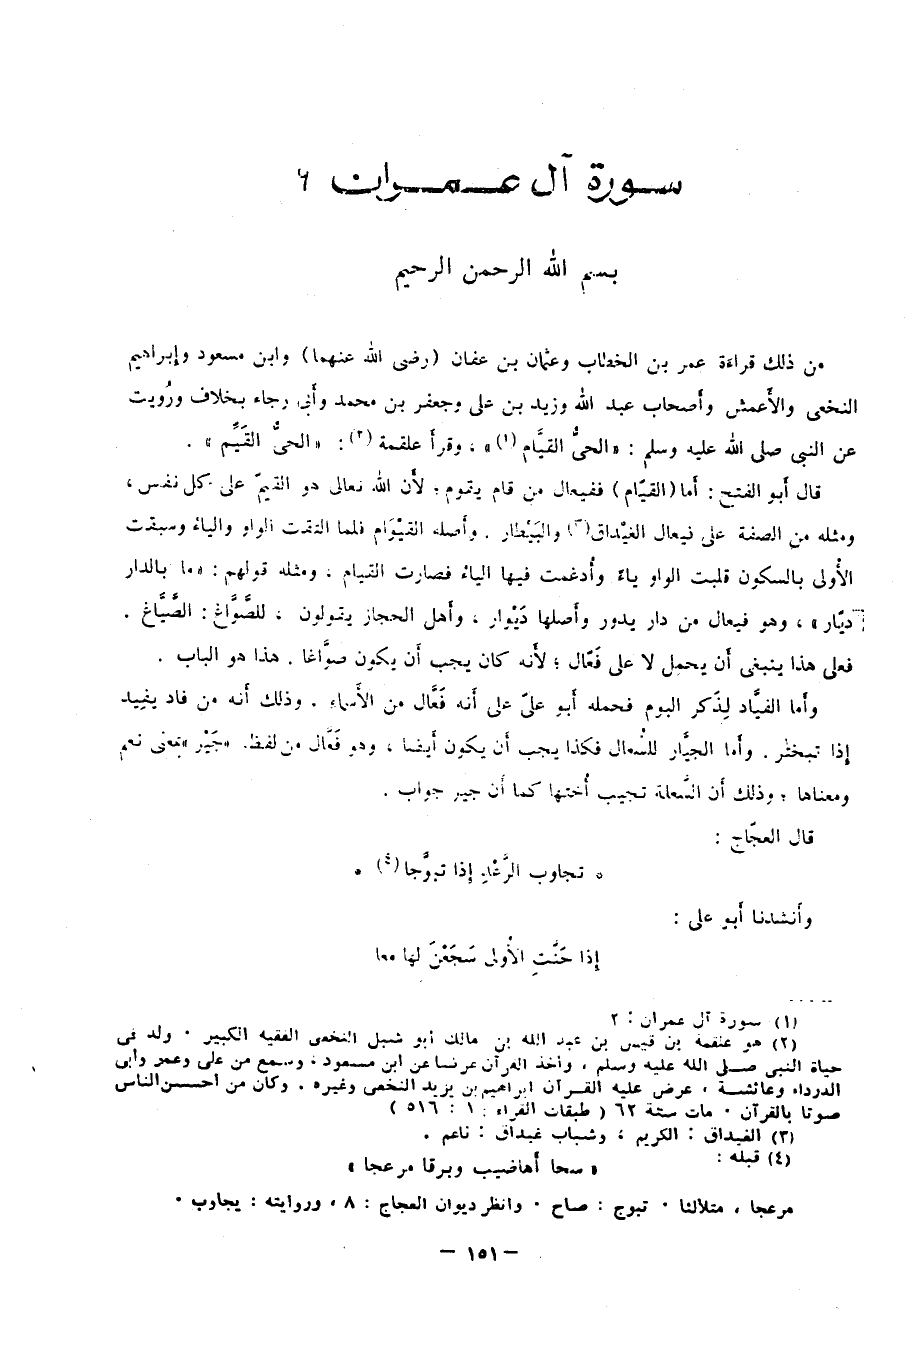 سورة آل عمران
بسم الله الرحمن الرحيم
من ذلك قراءة عمر بن الخطاب وعثمان بن عفان (رضى الله عنهما) وابن مسعود وإبراهيم
النخعى والأعمش وأصحاب عبد الله وزيد بن على وجعفر بن محمد وأبى رجاء بخلاف ورُويت
عن النبى صلى الله عليه وسلم : «الحىُّ القيَّام (١)» ، وقرأ علقمة (٢): «الحىُّ القَيِّم» .
قال أبو الفتح : أما (القيَّام) ففيعال من قام يقوم ؛ لأن الله تعالى هو القيمّ على كل نفس ،
ومثله من الصفة على فيعال الغَيْداق(٣) والبَيْطار . وأصله القيْوَام فلما التقت الواو والياء وسبقت
الأولى بالسكون قلبت الواو ياءً وأُدغمت فيها الياء فصارت القيام ، ومثله قولهم : «ما بالدار
ديّار» ، وهو فيعال من دار يدور وأصلها دَيْوار ، وأهل الحجاز يقولون ، للصَّوَّاغ : الصَّيَّاغ .
فعلى هذا ينبغى أن يحمل لا على فَعّال ؛ لأنه كان يجب أن يكون صوَّاغا . هذا هو الباب .
وأما الفيَّاد لِذَكر البوم فحمله أبو علىّ على أنه فَعَّال من الأسماء . وذلك أنه من فاد يفيد
إذا تبختر . وأما الجيَّار للسُعال فكذا يجب أن يكون أيضا ، وهو فَعَّال من لفظ «جَيْر» بمعنى نعم
ومعناها ؛ وذلك أن السَّعلة تجيب أُختها كما أن جير جواب .
قال العجّاج :
* تجاوب الرَّعْدِ إذا تبوَّجا(٤) *
وأنشدنا أبو على :
إذا حَنَّتِ الأُولى سَجَعْنَ لها معا
(١) سورة آل عمران : ٢
(٢) هو علقمة بن قيس بن عبد الله بن مالك أبو شبل النخعى الفقيه الكبير . ولد فى
حياة النبى صلى الله عليه وسلم ، وأخذ القرآن عرضا عن ابن مسعود ، وسمع من على وعمر وأبى
الدرداء وعائشة ، عرض عليه القرآن ابراهيم بن يزيد النخعى وغيره . وكان من أحسن الناس
صوتا بالقرآن . مات سنة ٦٢ ( طبقات القراء : ١ : ٥١٦ )
(٣) الغيداق : الكريم ، وشباب غيداق : ناعم .
(٤) قبله :
« سحا أهاضيب وبرقا مرعجا »
مرعجا ، متلألئا . تبوج : صاح . وانظر ديوان العجاج : ٨ ، وروايته : يجاوب .
— ١٥١ —